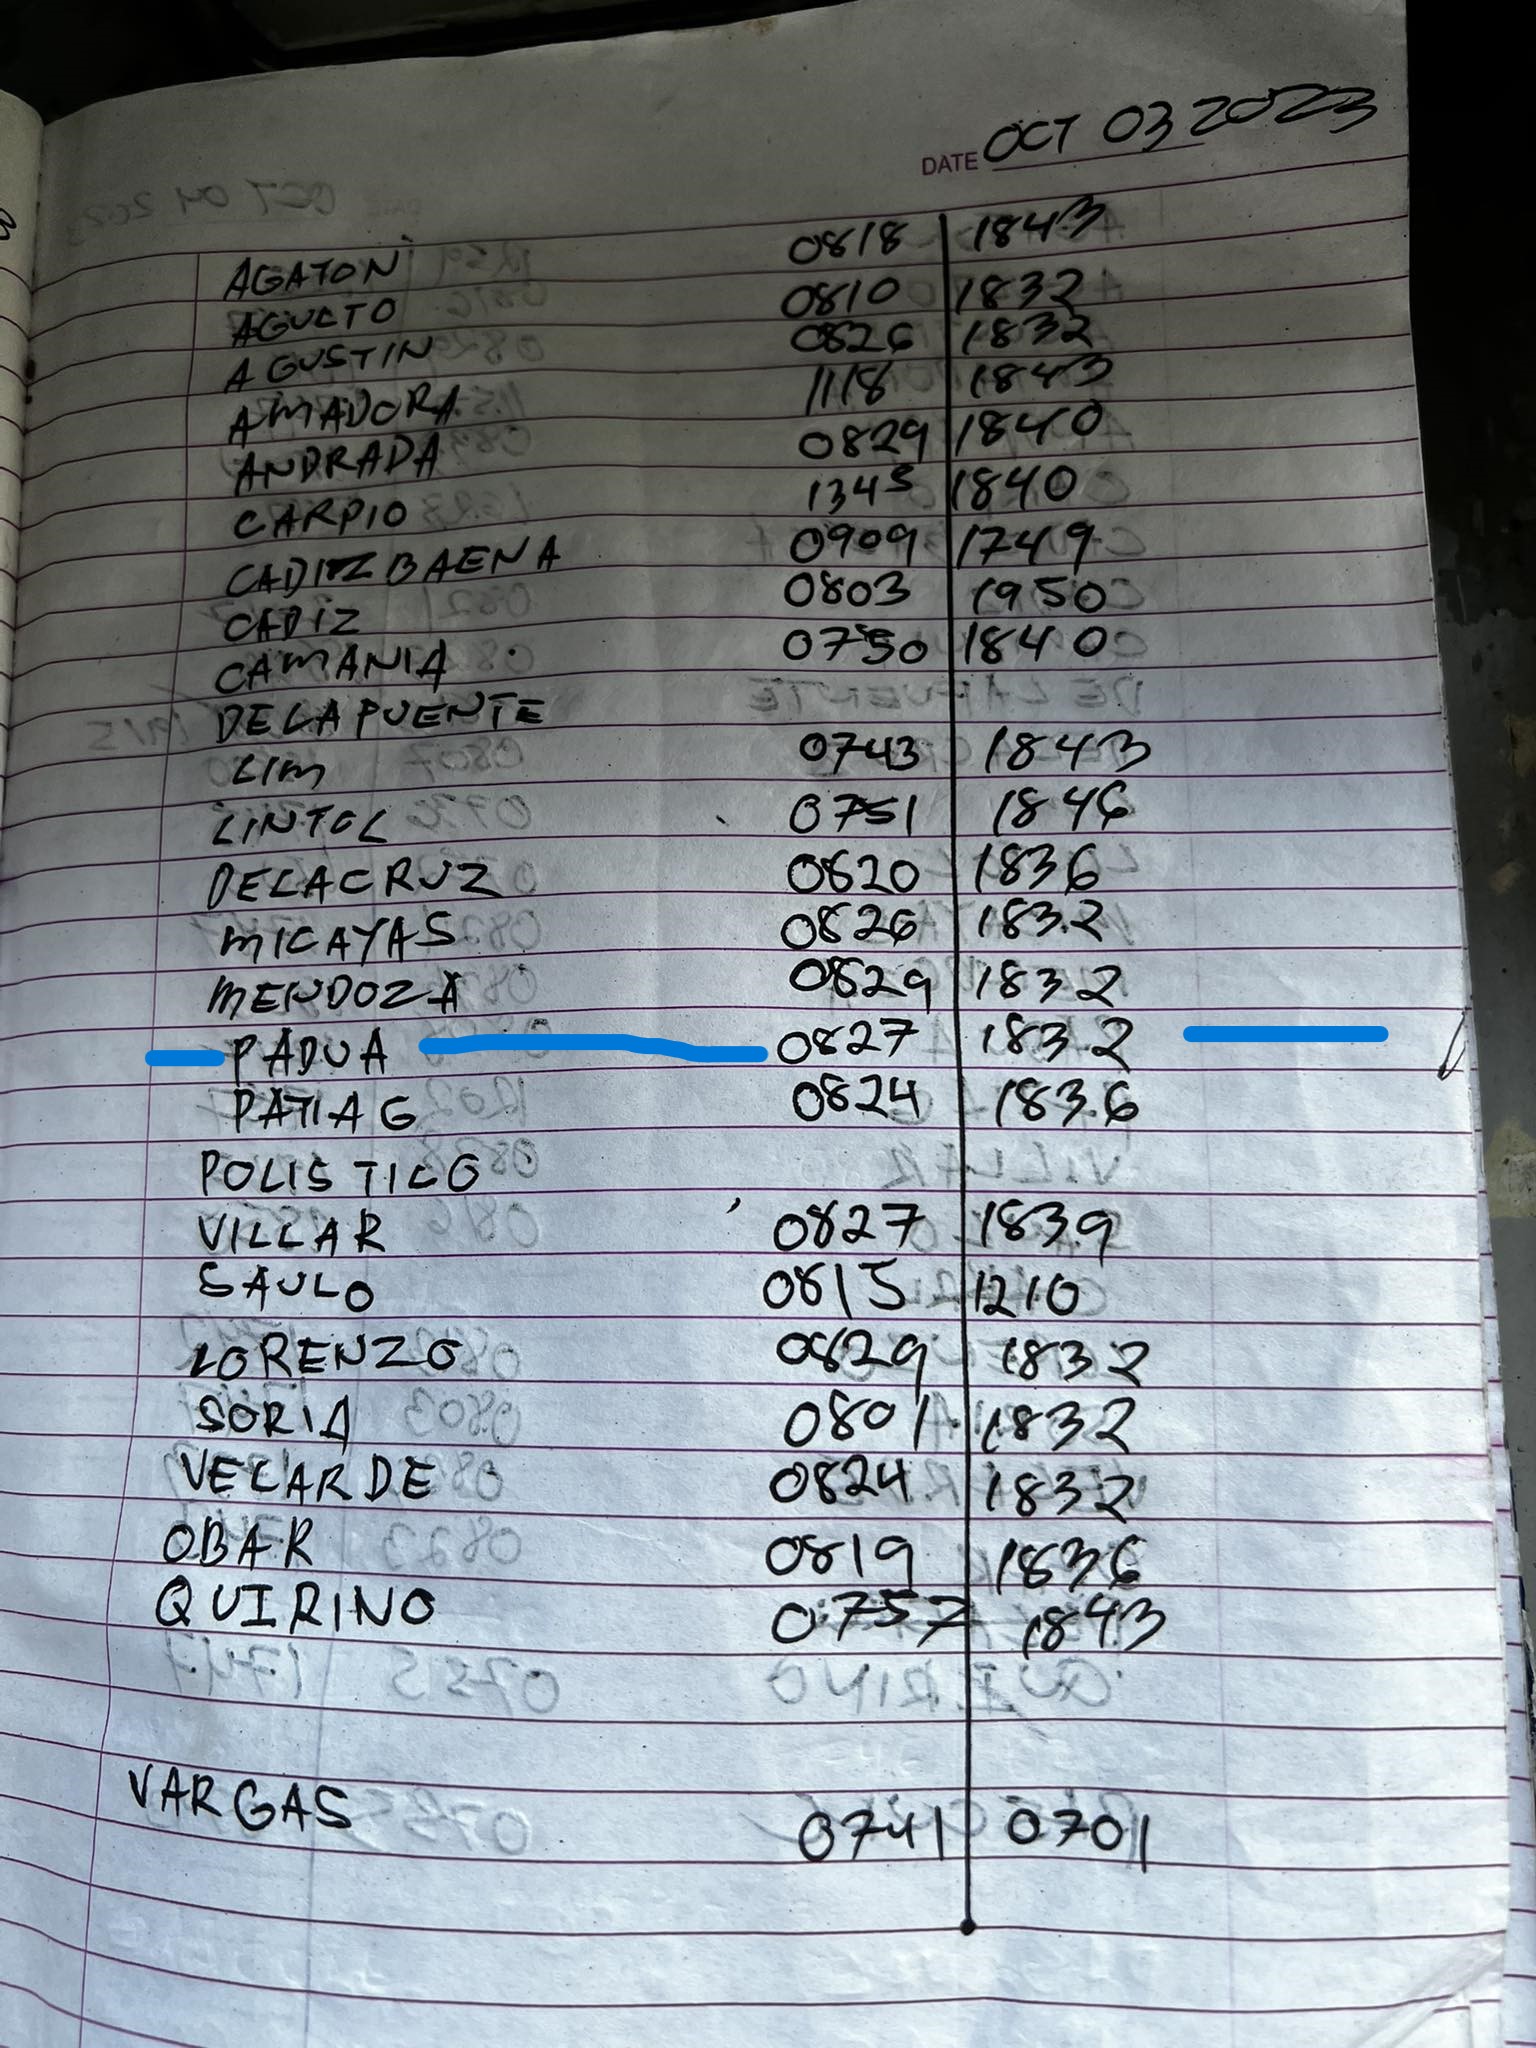 DATE OCT 03 2023
AGATON 0818 1843
AGUCTO 0810 1832
AGUSTIN 0826 1832
AMADORA 1118 1843
ANDRADA 0829 1840
CARPIO 1345 1840
CADIZ BAENA 0909 1749
CADIZ 0803 1950
CAMANIA 0750 1840
DELAPUENTE
LIM 0743 1843
LINTOL 0751 1846
DELACRUZ 0820 1836
MICAYAS 0826 1832
MENDOZA 0829 1832
PADUA 0827 1832
PATIAG 0824 1836
POLISTICO
VILLAR 0827 1839
SAULO 0815 1210
LORENZO 0829 1832
SORIA 0801 1832
VELARDE 0824 1832
OBAR 0819 1836
QUIRINO 0757 1843
VARGAS 0741 0701